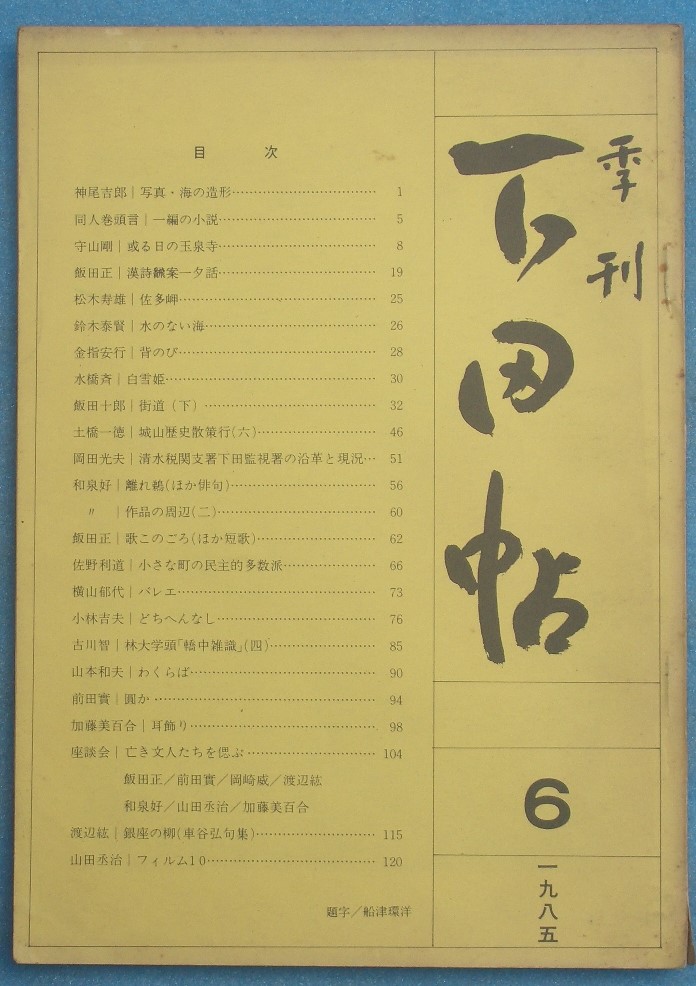 季刊
下田帖
6
一九八五
目　次
神尾吉郎｜写真・海の造形…………………………1
同人巻頭言｜一編の小説…………………………5
守山剛｜或る日の玉泉寺…………………………8
飯田正｜漢詩飜案一夕話…………………………19
松木寿雄｜佐多岬…………………………25
鈴木泰賢｜水のない海…………………………26
金指安行｜背のび…………………………28
水橋斉｜白雪姫…………………………30
飯田十郎｜街道（下）…………………………32
土橋一徳｜城山歴史散策行(六)…………………………46
岡田光夫｜清水税関支署下田監視署の沿革と現況…51
和泉好｜離れ鵜(ほか俳句)…………………………56
〃｜作品の周辺(二)…………………………60
飯田正｜歌このごろ(ほか短歌)…………………………62
佐野利道｜小さな町の民主的多数派…………………66
横山郁代｜バレエ…………………………73
小林吉夫｜どちへんなし…………………………76
古川智｜林大学頭「轎中雑識」(四)…………………85
山本和夫｜わくらば…………………………90
前田實｜圓か…………………………94
加藤美百合｜耳飾り…………………………98
座談会｜亡き文人たちを偲ぶ…………………104
飯田正／前田實／岡崎威／渡辺紘
和泉好／山田丞治／加藤美百合
渡辺紘｜銀座の柳(車谷弘句集)…………………115
山田丞治｜フィルム10…………………………120
題字／船津環洋